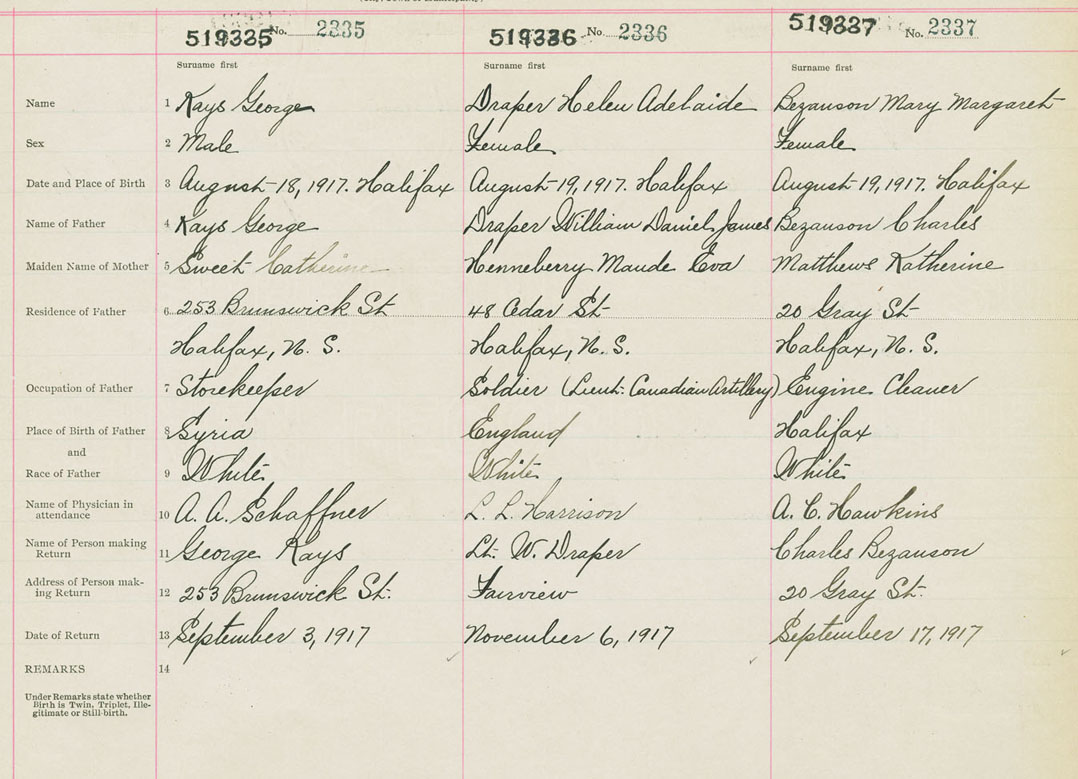 519335 No. 2335 519336 No. 2336 519337 No. 2337
Surname first Surname first Surname first
Name 1 Kays George Draper Helen Adelaide Bezanson Mary Margaret
Sex 2 Male Female Female
Date and Place of Birth 3 August 18, 1917. Halifax August 19, 1917. Halifax August 19, 1917. Halifax
Name of Father 4 Kays George Draper William Daniel James Bezanson Charles
Maiden Name of Mother 5 Sweet Catherine Henneberry Maude Eva Matthews Katherine
Residence of Father 6 253 Brunswick St 48 Cedar St 20 Gray St
Halifax, N. S. Halifax, N. S. Halifax, N. S.
Occupation of Father 7 Storekeeper Soldier (Lieut. Canadian Artillery) Engine Cleaner
Place of Birth of Father 8 Syria England Halifax
and
Race of Father 9 White White White
Name of Physician in
attendance 10 A. A. Schaffner L. L. Harrison A. C. Hawkins
Name of Person making
Return 11 George Kays Lt. W. Draper Charles Bezanson
Address of Person mak-
ing Return 12 253 Brunswick St. Fairview 20 Gray St.
Date of Return 13 September 3, 1917 November 6, 1917 September 17, 1917
REMARKS 14
Under Remarks state whether
Birth is Twin, Triplet, Ille-
gitimate or Still-birth.